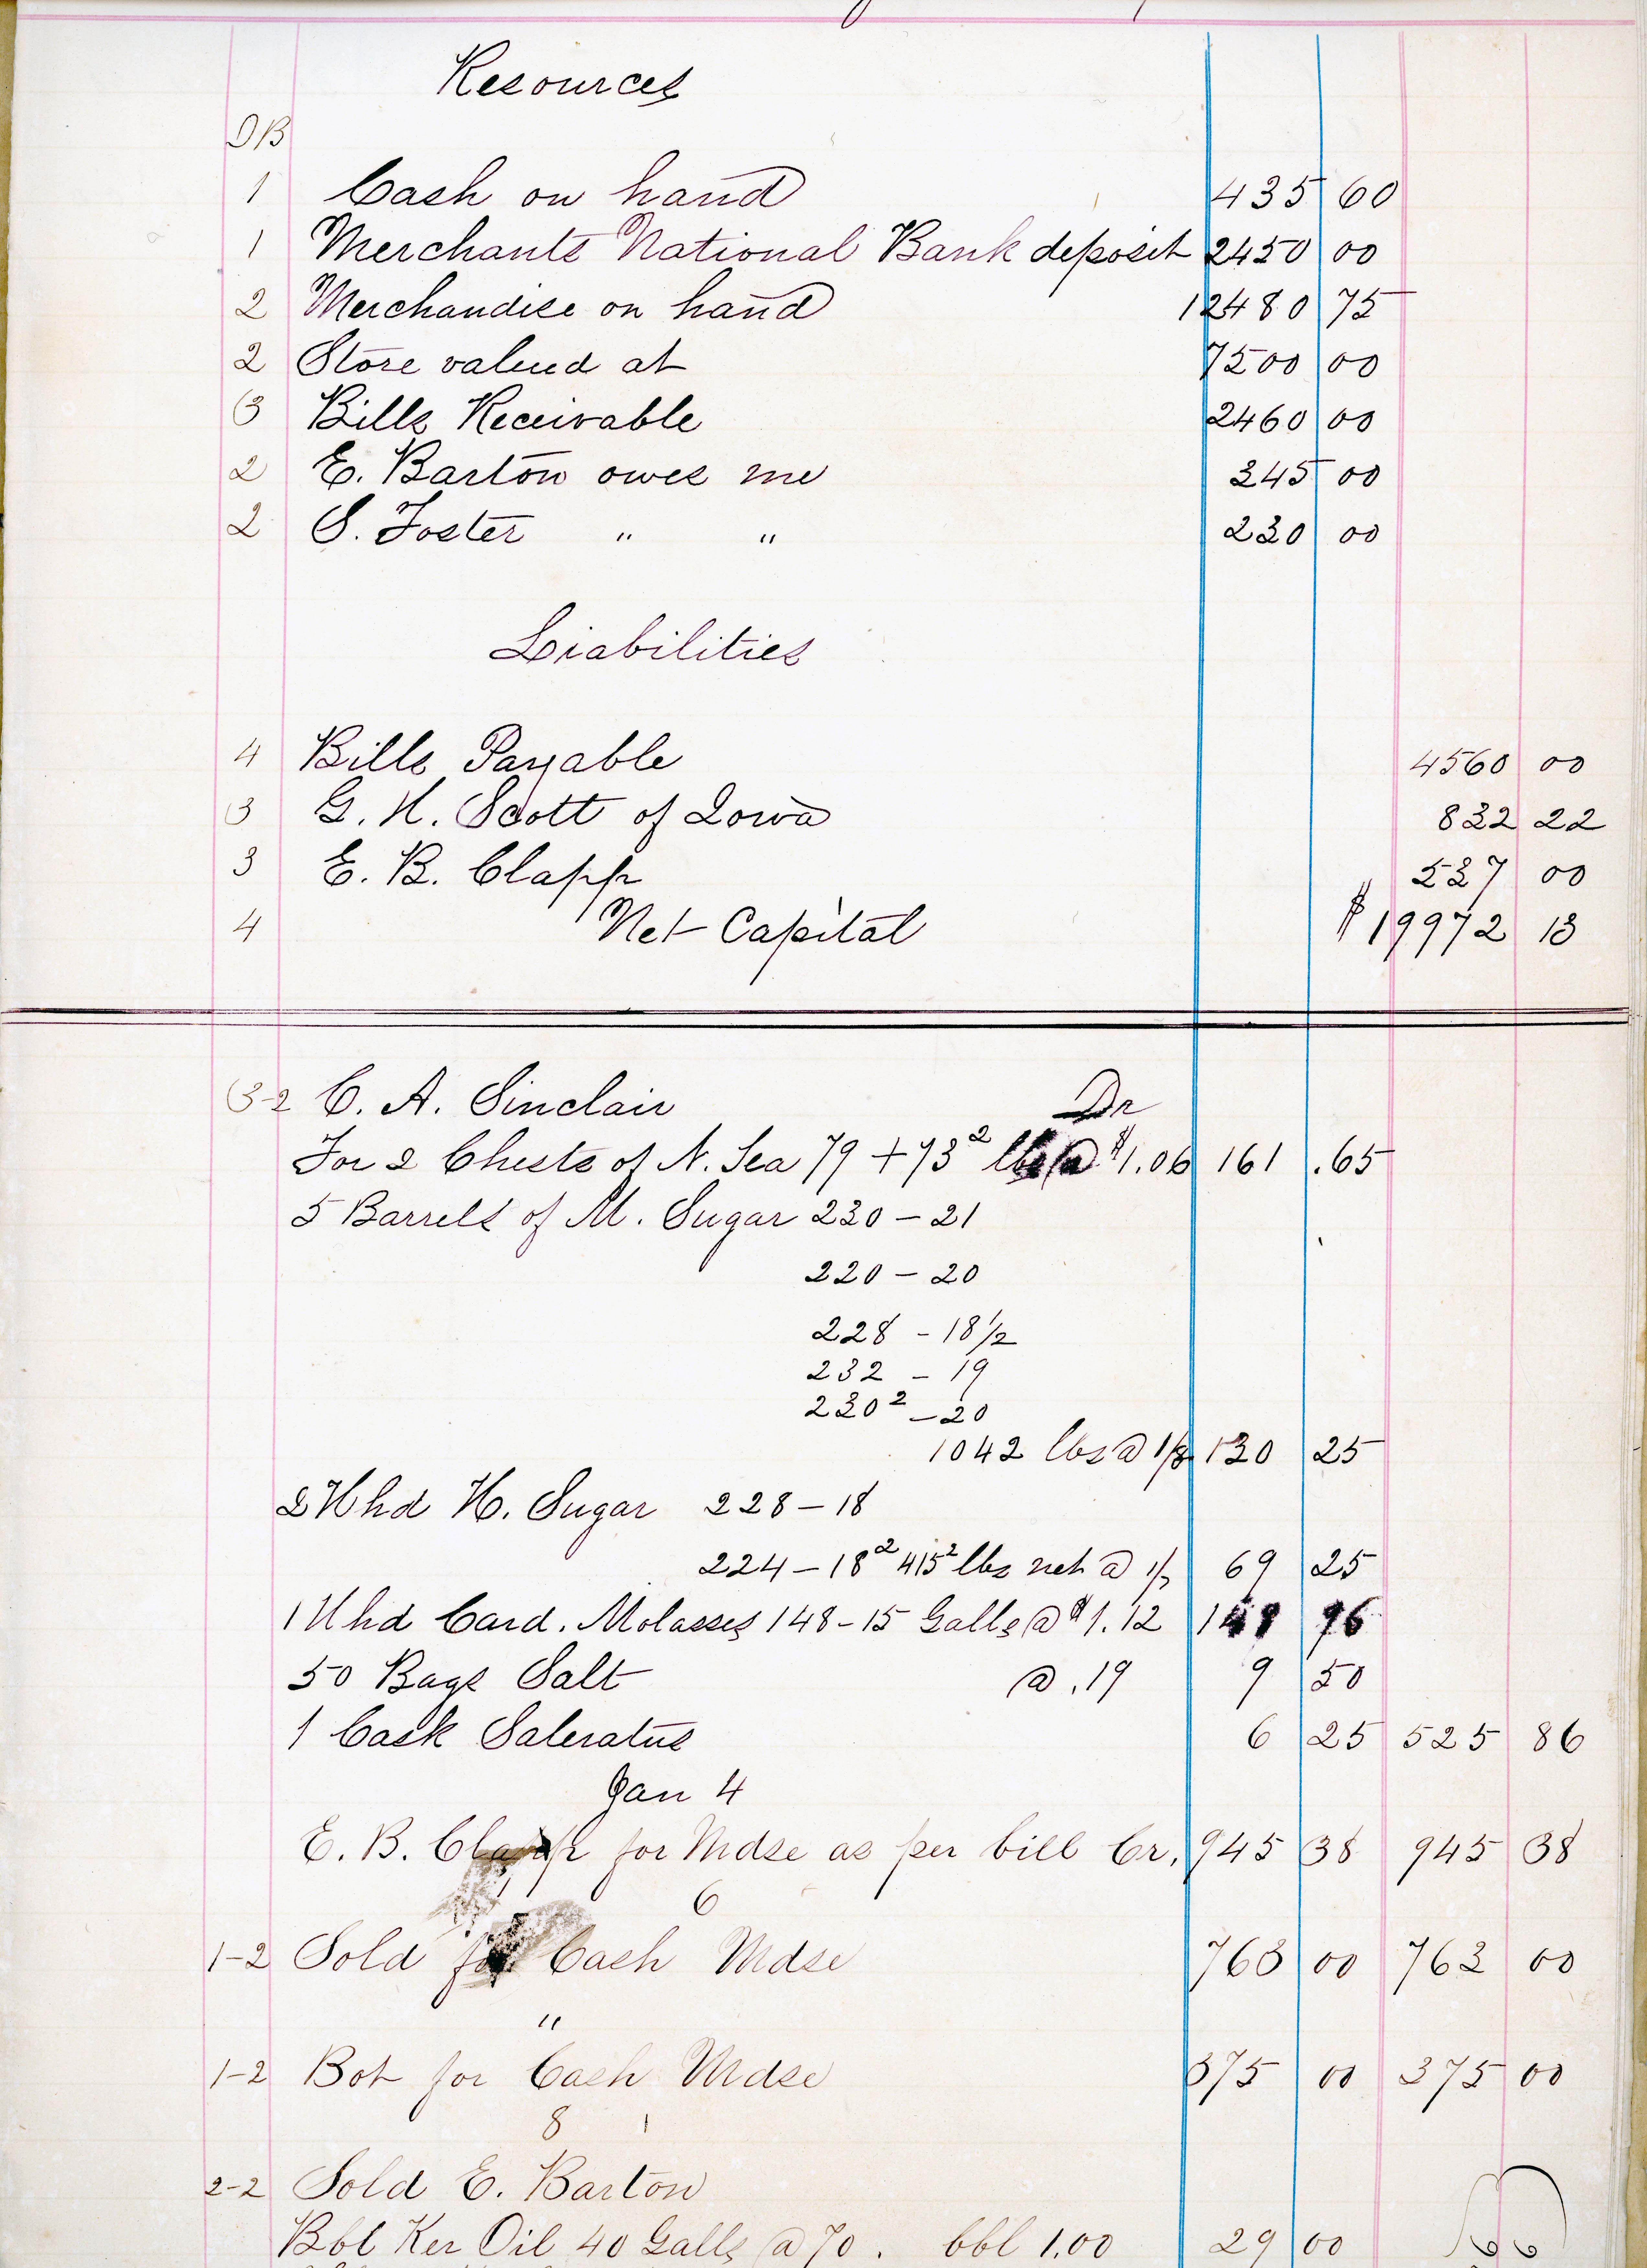 Resources
DB
1 Cash on hand 435 60
1 Merchants National Bank deposit 2450 00
2 Merchandise on hand 12480 75
2 Store valued at 7500 00
3 Bills Receivable 2460 00
2 E. Barton owes me 345 00
2 S. Foster " " 230 00
Liabilities
4 Bills Payable 4560 00
3 G. H. Scott of Iowa 832 22
3 E. B. Clapp 537 00
4 Net Capital $ 19972 13
3-2 C. A. Sinclair Dr
For 2 Chests of N. Tea 79 + 73² lbs @ $1.06 161 .65
5 Barrels of M. Sugar 230 - 21
220 - 20
228 - 18 1/2
232 - 19
230² - 20
1042 lbs @ 1/8 130 25
2 Hhd H. Sugar 228 - 18
224 - 18² 415² lbs net @ 69 25
1 Hhd Card. Molasses 148 - 15 Galls @ $1.12 148 96
50 Bags Salt @ .19 9 50
1 Cask Saleratus 6 25 525 86
Jan 4
E. B. Clapp for Mdse as per bill Cr. 945 38 945 38
6
1-2 Sold for Cash Mdse 763 00 763 00
"
1-2 Bot for Cash Mdse 375 00 375 00
8
2-2 Sold E. Barton
Bbl Ker Oil 40 Galls @ 70 . bbl 1.00 29 00